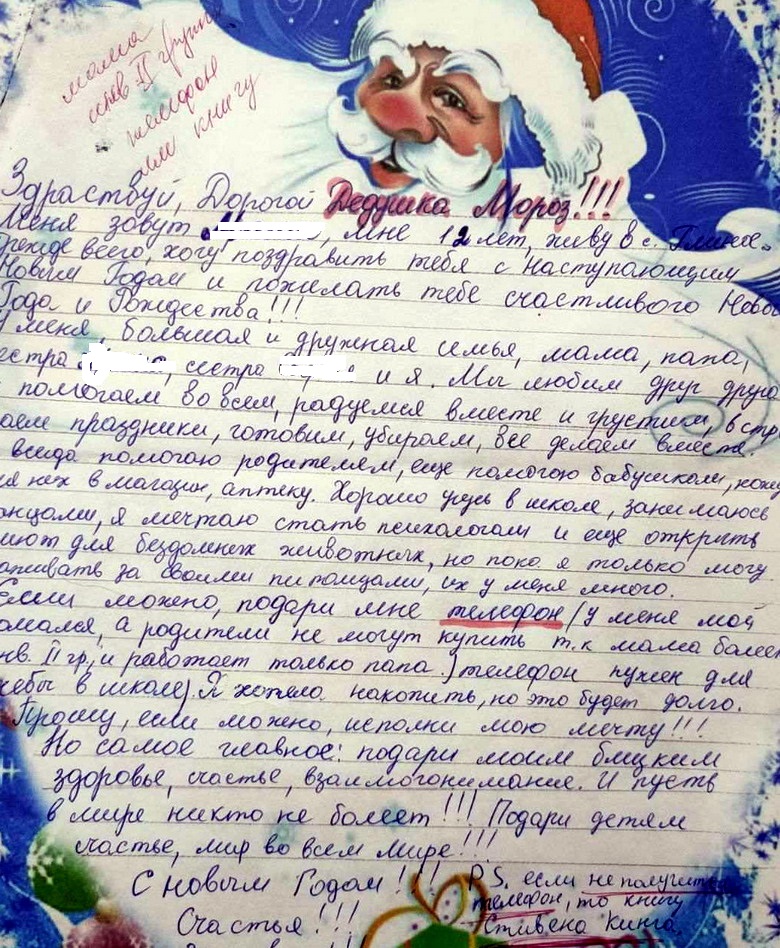 мама
инв II группы
телефон
или книгу
Здраствуй, Дорогой Дедушка Мороз!!!
Меня зовут , мне 12 лет, живу в с.
Прежде всего, хочу поздравить тебя с наступающим
Новым Годом и пожелать тебе счастливого Нового
Года и Рождества!!!
У меня, большая и дружная семья, мама, папа,
сестра , сестра и я. Мы любим друг друга
помогаем во всем, радуемся вместе и грустим, встре
чаем праздники, готовим, убираем, все делаем вместе.
всегда помогаю родителям, еще помогаю бабушкам, хожу
для них в магазин, аптеку. Хорошо учусь в школе, занимаюсь
танцами, я мечтаю стать психологом и еще открыть
приют для бездомных животных, но пока я только могу
ухаживать за своими питомцами, их у меня много.
Если можно, подари мне телефон (у меня мой
сломался, а родители не могут купить т.к мама болеет
инв. II гр, и работает только папа.) телефон нужен для
учебы в школе). Я хотела накопить, но это будет долго.
Прошу, если можно, исполни мою мечту!!!
Но самое главное: подари моим близким
здоровье, счастье, взаимопонимание. И пусть
в мире никто не болеет!!! Подари детям
счастье, мир во всем мире!!!
С новым Годом!!!
Счастья!!!
P.S. если не получится
телефон, то книгу
Стивена Кинга.